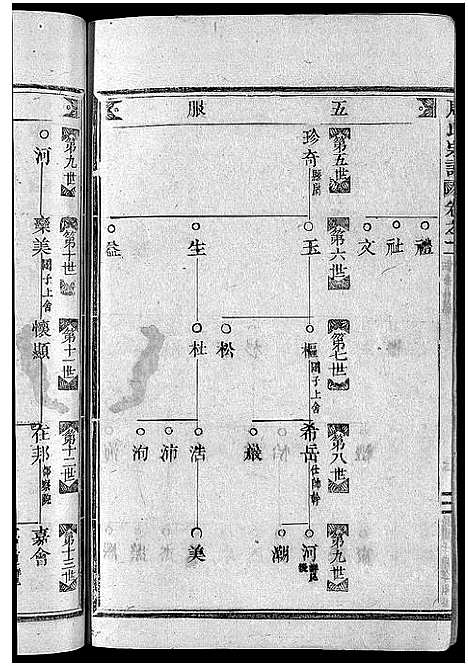 五服
第五世
珍奇 縣尉
第六世
禮
社
文
玉
生
益
第七世
樞 國子上舍
松
杜
第八世
希岳 仕帥幹
巖
浩
沛
洵
第九世
河
潮
美
第九世
河
第十世
榮美 國子上舍
第十一世
懷顯
第十二世
在邦
第十三世
嘉會